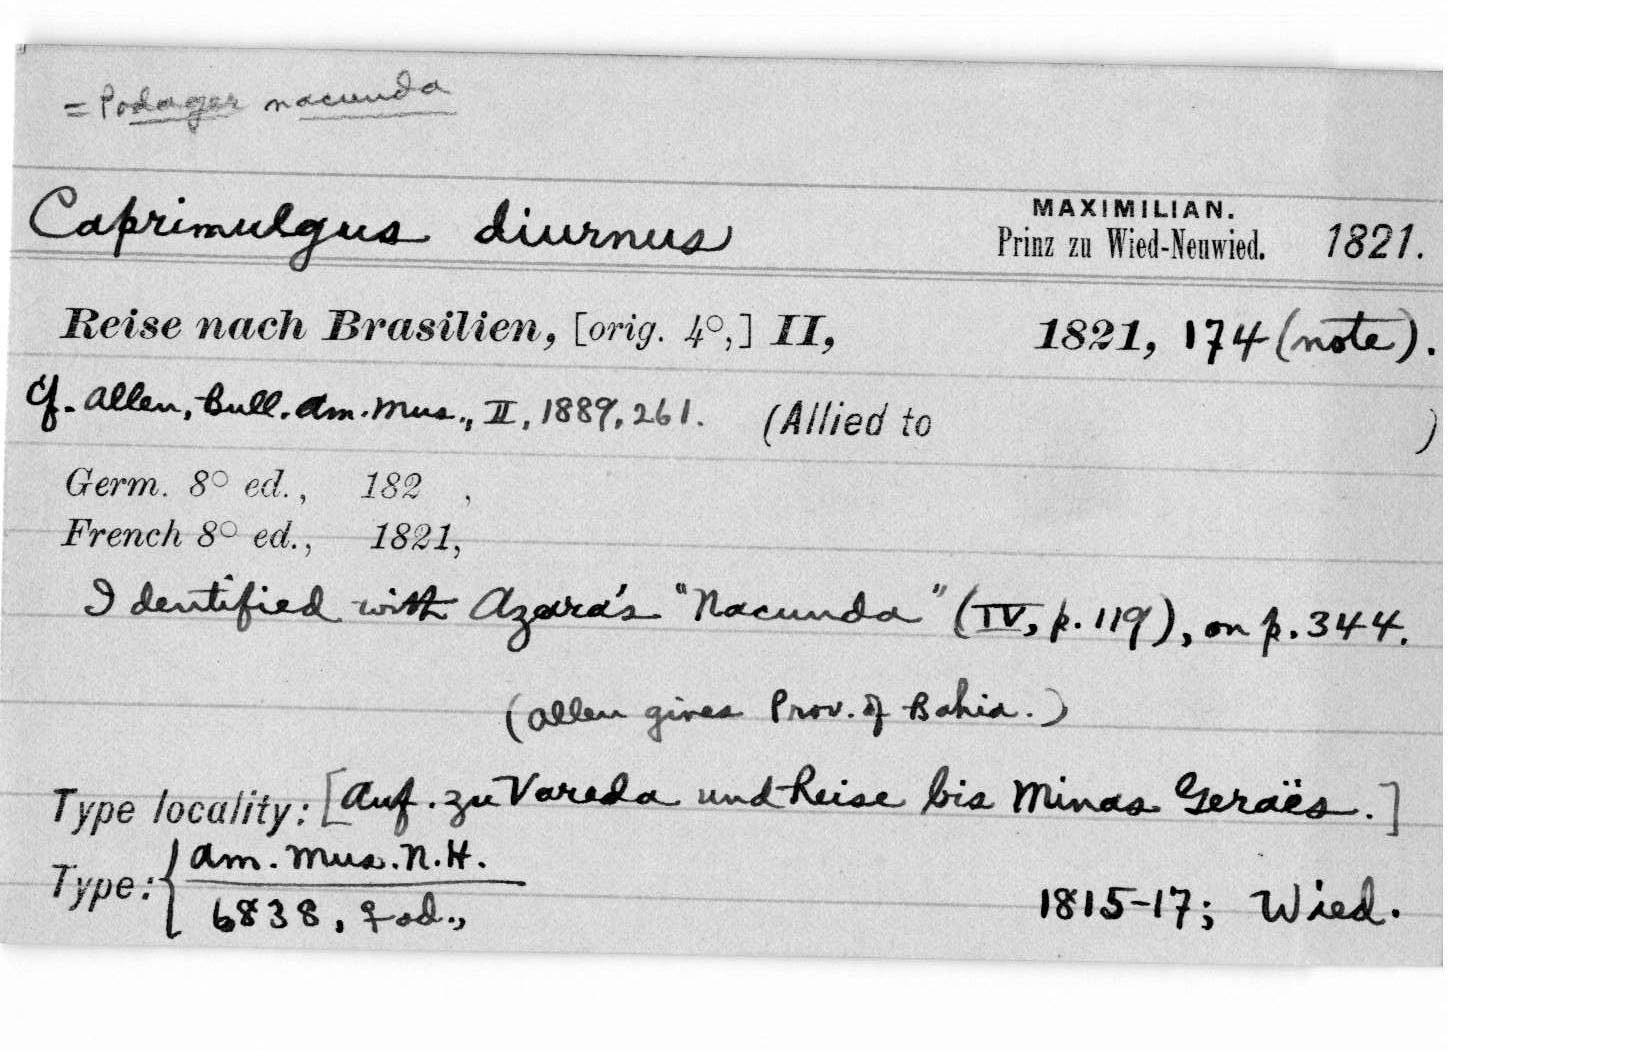 = Podager nacunda
Caprimulgus diurnus MAXIMILIAN. Prinz zu Wied-Neuwied. 1821.
Reise nach Brasilien, [orig. 4°,] II, 1821, 174 (note).
Cf. Allen, Bull. Am. Mus., II, 1889, 261. (Allied to )
Germ. 8° ed., 182 ,
French 8° ed., 1821,
Identified with Azara's "Nacunda" (IV, p. 119), on p. 344.
(Allen gives Prov. of Bahia.)
Type locality: [Auf. zu Vareda und Reise bis Minas Geraës.]
Type: { Am. Mus. N. H.
6838, ♀ ad., 1815-17; Wied.